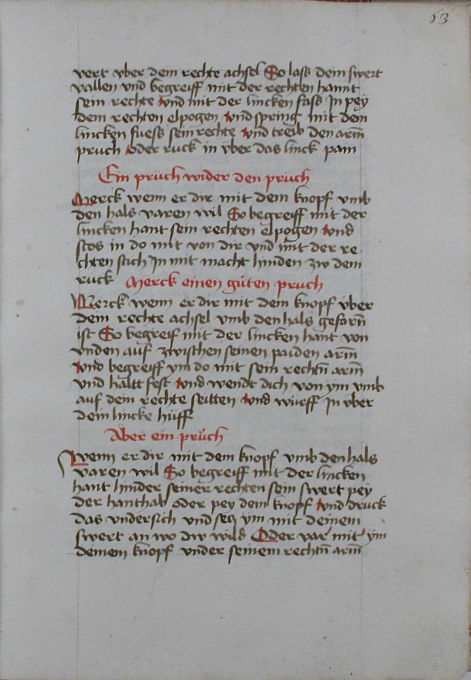 63
vert vber dem rechte achsel So lass dem swert
vallen vnd begreiff mit der rechten hannt
sein rechte vnd mit der lincken fass In pey
dem rechten elpogen vnd spring mit dem
lincken fuess sein rechte vnd treib den arm
pruch oder ruck in vber das linck pain
Ein pruch wider den pruch
Merck wenn er dir mit dem knopf vmb
den hals varen wil So begreiff mit der
lincken hant sein rechten elpogen vnd
stos in do mit von dir vnd mit der re
chten stich In mit macht hinden zw dem
ruck Merck einen guten pruch
Merck wenn er dir mit dem knopf vber
dem rechte achsel vmb den hals gefarn
ist So begreif mit der lincken hant von
vnden auf zwischen seinen paiden arm
vnd begreiff ym do mit sein rechtn arm
vnd haltt fest vnd wendt dich von ym vmb
auf dem rechte seitten vnd wurff In vber
dein lincke hüff
Aber ein pruch
Wenn er dir mit dem knopf vmb den hals
varen wil So begreiff mit der lincken
hant hinder seiner rechten sein swert pey
der hanthab oder pey dem knopf vnd druck
das vndersich vnd secz ym mit deinem
swert an wo dw wild Oder var mit ym
deinem knopf vnder seinem rechtn arm